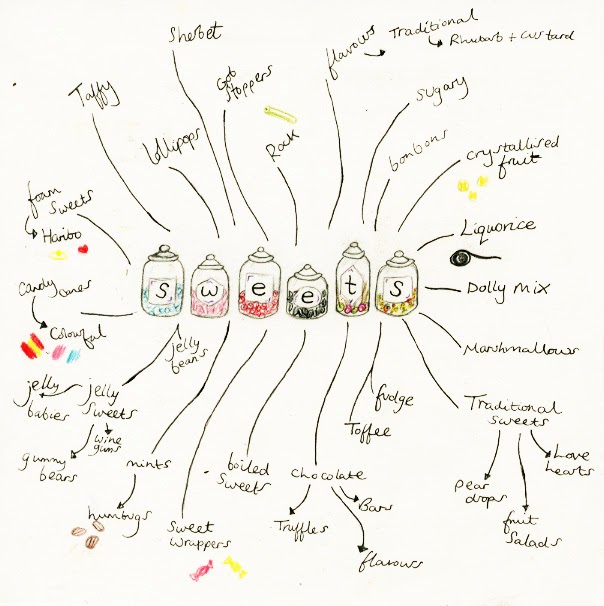 Sherbet
flavours
Traditional
Rhubarb + custard
Taffy
Gob
stoppers
Sugary
lollipops
Rock
bonbons
crystallised
fruit
foam
Sweets
Haribo
Liquorice
Candy
canes
Colourful
S w e e t s
Dolly mix
jelly
beans
Marshmallows
jelly
babies
jelly
sweets
wine
gums
gummy
bears
mints
humbugs
Sweet
wrappers
boiled
sweets
fudge
Toffee
Chocolate
Truffles
Bars
flavours
Traditional
sweets
Love
hearts
pear
drops
fruit
Salads